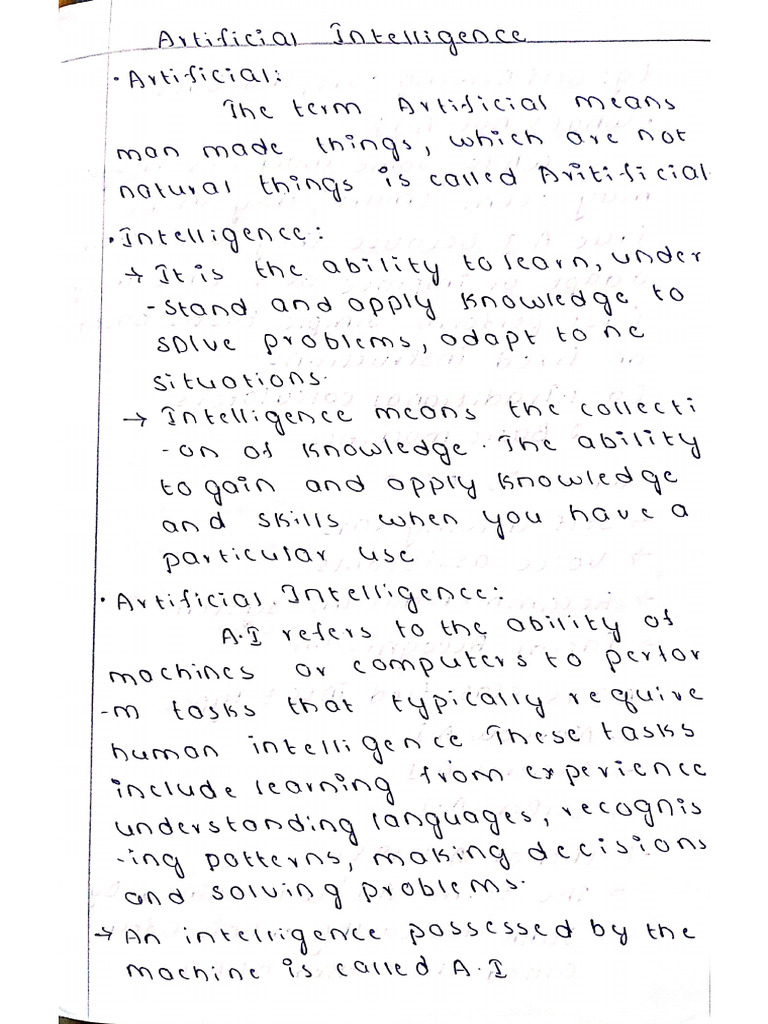 Artificial Intelligence
• Artificial:
The term Artificial means
man made things, which are not
natural things is called Aritificial
• Intelligence:
→ It is the ability to learn, under
-stand and apply knowledge to
solve problems, adapt to ne
situations.
→ Intelligence means the collecti
-on of knowledge. The ability
to gain and apply knowledge
and skills when you have a
particular use
• Artificial Intelligence:
A.I refers to the ability of
machines or computers to perfor
-m tasks that typically require
human intelligence These tasks
include learning from experience
understanding languages, recognis
-ing patterns, making decisions
and solving problems.
→ An intelligence possessed by the
machine is called A.I